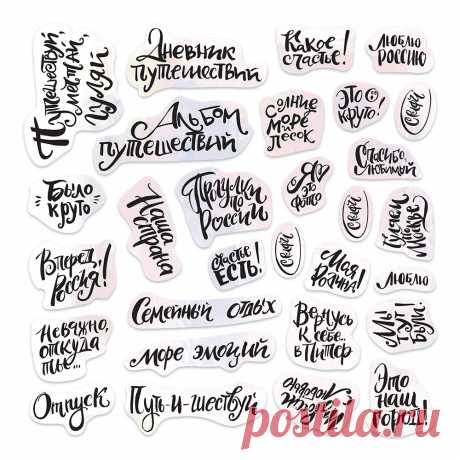 Путешествуй,
мечтай,
гуляй
Дневник
путешествий
Какое
счастье!
люблю
Россию
Альбом
путешествий
солние
море
и
песок
Это
круто!
Спасибо,
любимый
Было
круто
Наша
страна
Прогулки
по
России
Я
это
фото
Гуляем
Вперед,
Россия!
счастье
ЕСТЬ!
Моя
Родина!
люблю
Семейный отдых
Неважно,
откуда
ты...
море эмоций
Вернусь
к себе..
в Питер
Мы
тут
были!
Отпуск
Путь-и-шествуй
Это
наш
город!
postila.ru